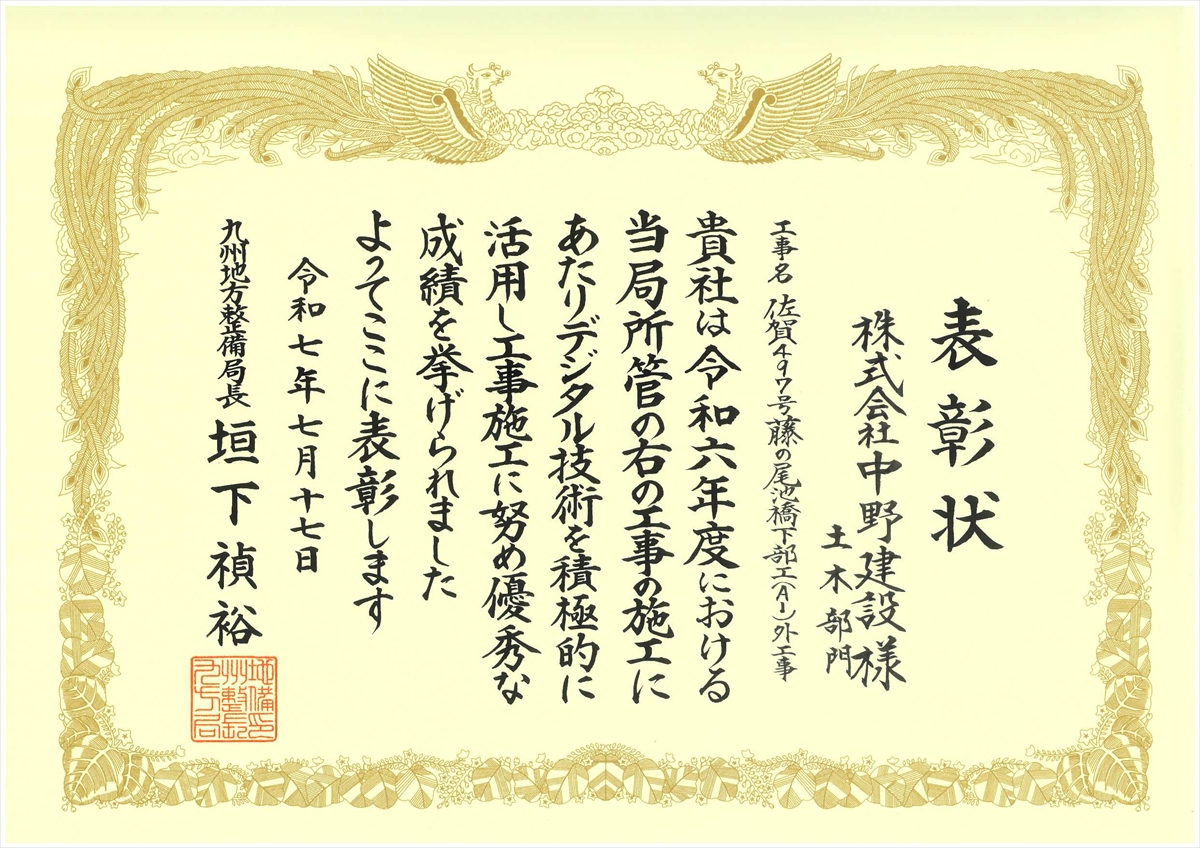 表彰状
株式会社中野建設様
土木部門
工事名 佐賀497号藤の尾池橋下部工(A1)外工事
貴社は令和六年度における
当局所管の右の工事の施工に
あたりデジタル技術を積極的に
活用し工事施工に努め優秀な
成績を挙げられました
よってここに表彰します
令和七年七月十七日
九州地方整備局長 垣下禎裕